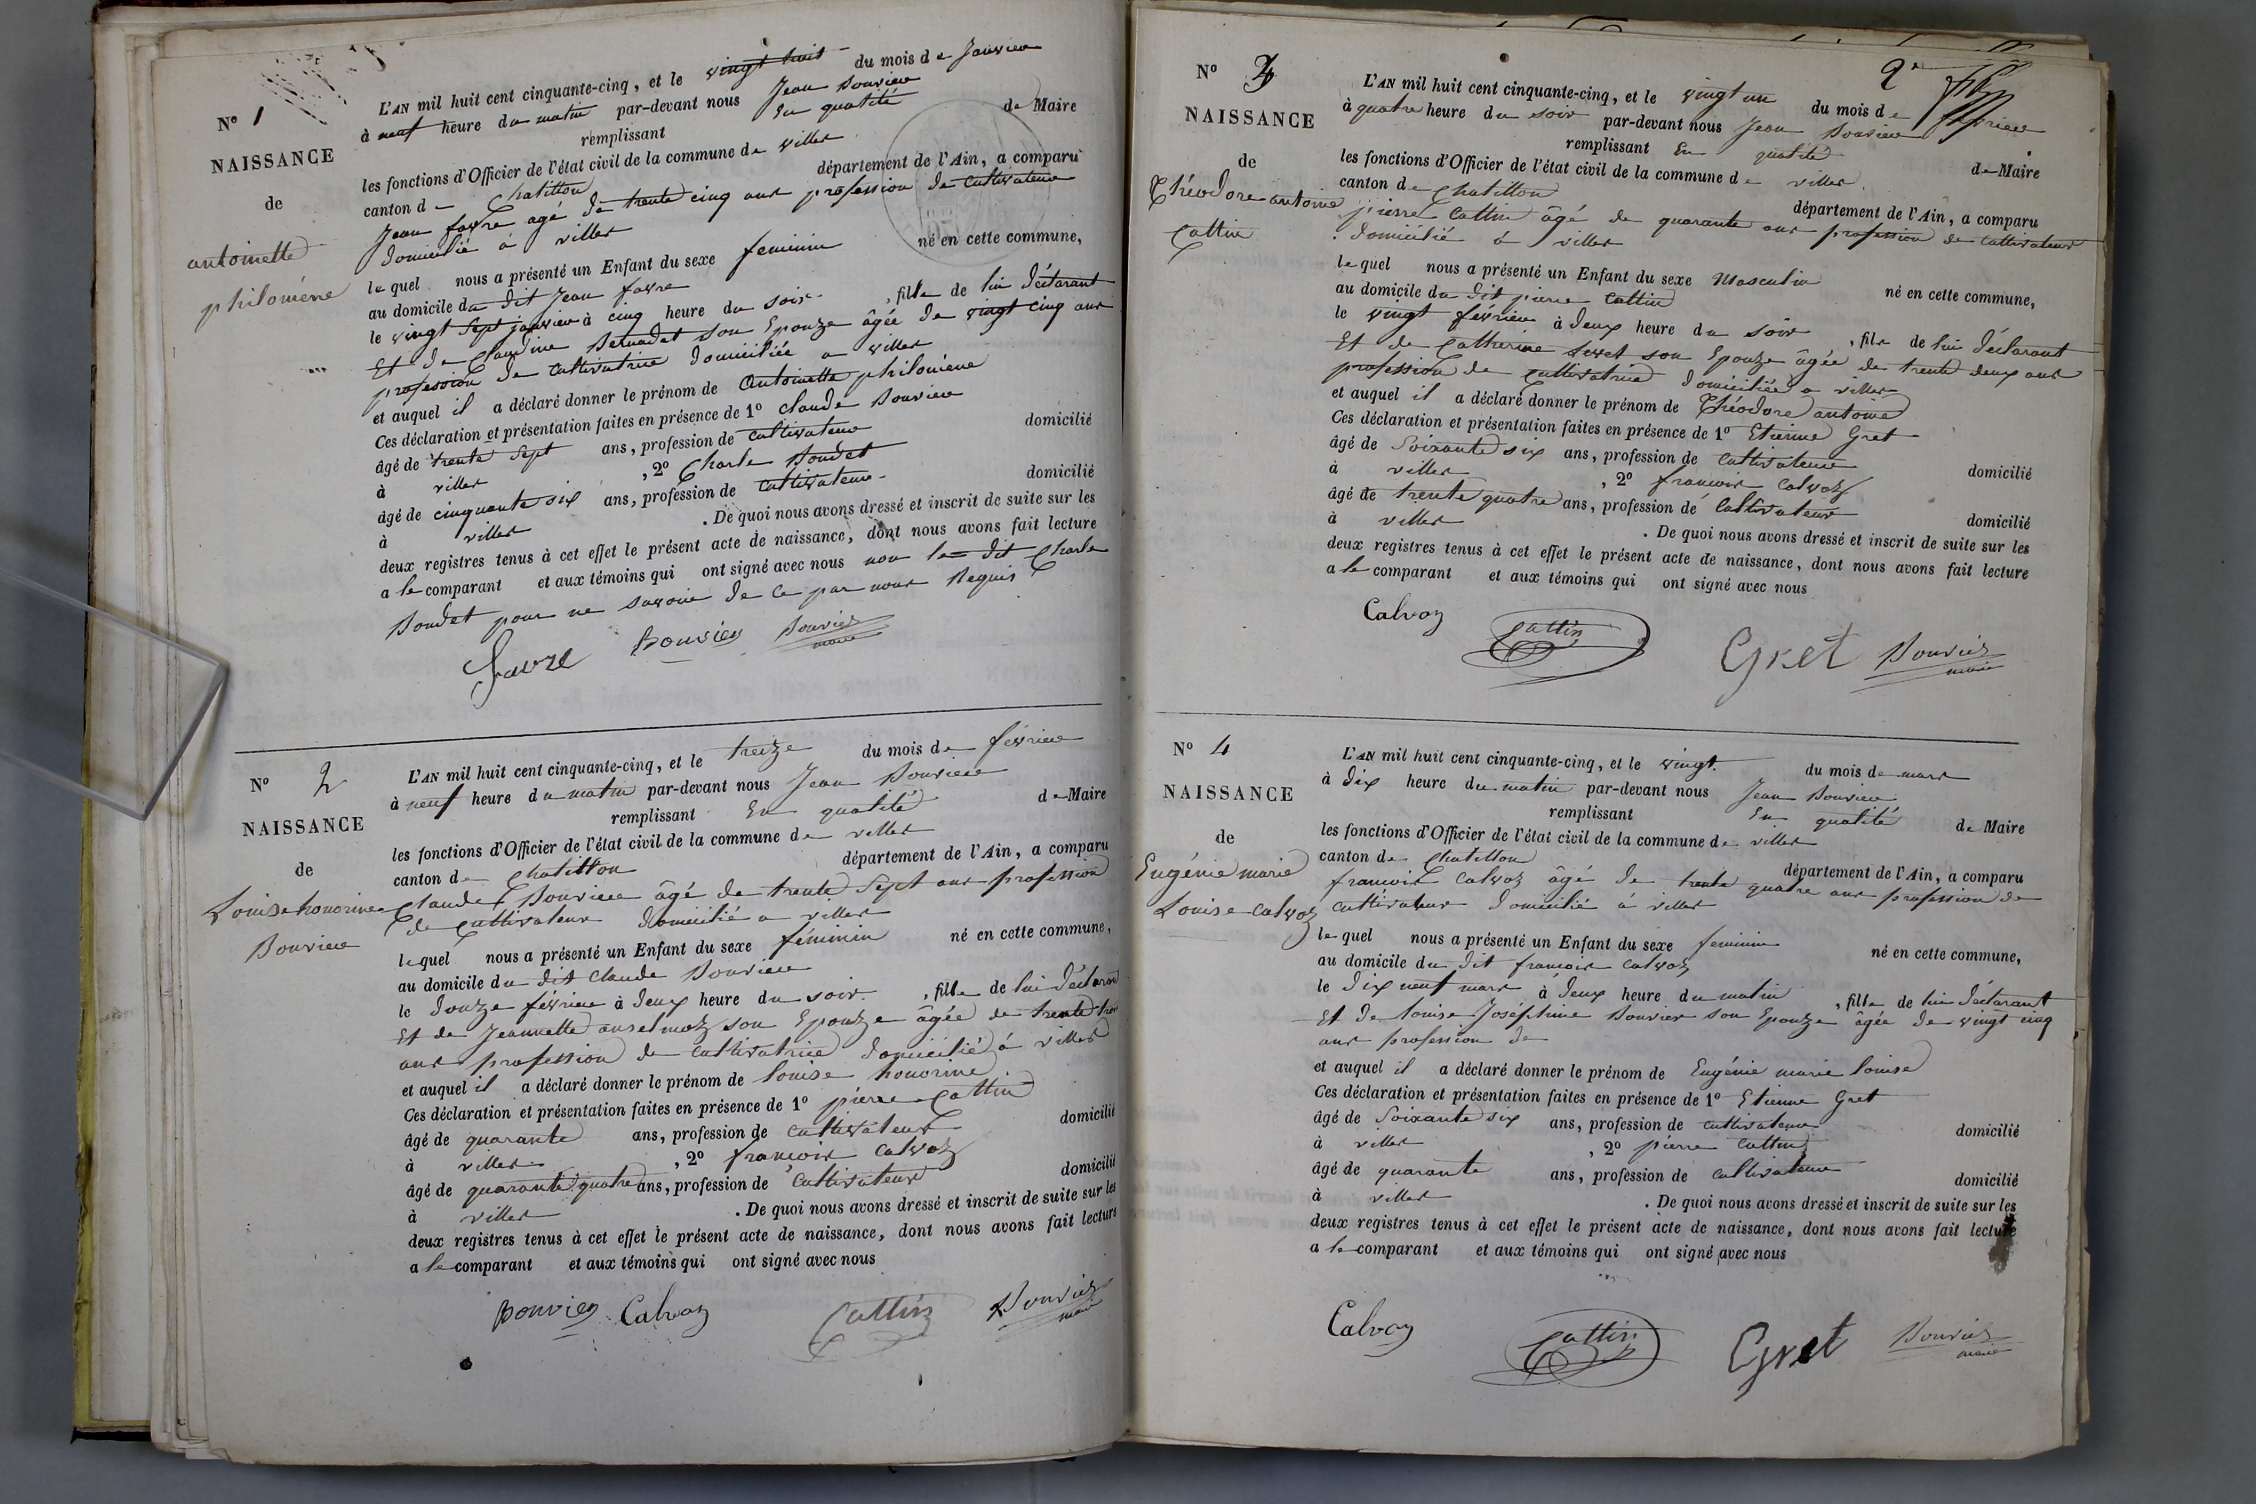 N° 1
NAISSANCE
de
antoinette
philomène
L'AN mil huit cent cinquante-cinq, et le vingt huit du mois de Janvier
à neuf heure du matin par-devant nous Jean Bouvier
remplissant En qualité de Maire
les fonctions d'Officier de l'état civil de la commune de villes
canton de Chatillon département de l'Ain, a comparu
Jean favre agé de trente cinq ans profession de cultivateur
domicilié à villes
lequel nous a présenté un Enfant du sexe feminin né en cette commune,
au domicile du dit Jean favre
le vingt Sept janvier à cinq heure du soir , fille de lui déclarant
Et de Claudine Bernadet son Epouze âgée de vingt cinq ans
profession de cultivatrice domiciliée a villes
et auquel il a déclaré donner le prénom de antoinette philomène
Ces déclaration et présentation faites en présence de 1° claude Bouvier
âgé de trente Sept ans, profession de cultivateur domicilié
à villes , 2° Charle Boudet
âgé de cinquante six ans, profession de cultivateur domicilié
à villes . De quoi nous avons dressé et inscrit de suite sur les
deux registres tenus à cet effet le présent acte de naissance, dont nous avons fait lecture
a le comparant et aux témoins qui ont signé avec nous non le dit Charle
Boudet pour ne savoir de ce par nous Requis
Favre Bouvier Bouvier
maire
N° 2
NAISSANCE
de
Louise honorine
Bouvier
L'AN mil huit cent cinquante-cinq, et le treize du mois de février
à neuf heure du matin par-devant nous Jean Bouvier
remplissant En qualité de Maire
les fonctions d'Officier de l'état civil de la commune de villes
canton de Chatillon département de l'Ain, a comparu
Claude Bouvier âgé de trente Sept ans profession
de cultivateur domicilié a villes
lequel nous a présenté un Enfant du sexe féminin né en cette commune,
au domicile du dit Claude Bouvier
le douze février à deux heure du soir , fille de lui déclarant
Et de Jeannette anselmoz son Epouze âgée de trente trois
ans profession de cultivatrice domicilié à villes
et auquel il a déclaré donner le prénom de louise honorine
Ces déclaration et présentation faites en présence de 1° pierre Cattin
âgé de quarante ans, profession de cultivateur domicilié
à villes , 2° françois Calvoz
âgé de quarante quatre ans, profession de cultivateur domicilié
à villes . De quoi nous avons dressé et inscrit de suite sur les
deux registres tenus à cet effet le présent acte de naissance, dont nous avons fait lecture
a le comparant et aux témoins qui ont signé avec nous
Bouvier Calvoz Cattin Bouvier
maire
2e
N° 3
NAISSANCE
de
Théodore antoine
Cattin
L'AN mil huit cent cinquante-cinq, et le vingt un du mois de février
à quatre heure du soir par-devant nous Jean Bouvier
remplissant En qualité de Maire
les fonctions d'Officier de l'état civil de la commune de villes
canton de Chatillon département de l'Ain, a comparu
pierre Cattin âgé de quarante ans profession de cultivateur
domicilié à villes
lequel nous a présenté un Enfant du sexe Masculin né en cette commune,
au domicile du dit pierre Cattin
le vingt février à deux heure du soir , fils de lui déclarant
Et de Catherine son Epouze âgée de trente deux ans
profession de cultivatrice domiciliée a villes
et auquel il a déclaré donner le prénom de Théodore antoine
Ces déclaration et présentation faites en présence de 1° Etienne Gret
âgé de Soixante six ans, profession de cultivateur domicilié
à villes , 2° françois Calvoz
âgé de trente quatre ans, profession de Cultivateur domicilié
à villes . De quoi nous avons dressé et inscrit de suite sur les
deux registres tenus à cet effet le présent acte de naissance, dont nous avons fait lecture
a le comparant et aux témoins qui ont signé avec nous
Calvoz Cattin Gret Bouvier
maire
N° 4
NAISSANCE
de
Eugénie marie
Louise Calvoz
L'AN mil huit cent cinquante-cinq, et le vingt du mois de mars
à dix heure du matin par-devant nous Jean Bouvier
remplissant En qualité de Maire
les fonctions d'Officier de l'état civil de la commune de villes
canton de Chatillon département de l'Ain, a comparu
françois Calvoz âgé de trente quatre ans profession de
cultivateur domicilié à villes
lequel nous a présenté un Enfant du sexe feminin né en cette commune,
au domicile du dit françois Calvoz
le dix neuf mars à deux heure du matin , fille de lui déclarant
Et de louise Joséphine Bouvier son Epouze âgée de vingt cinq
ans profession de
et auquel il a déclaré donner le prénom de Eugénie marie louise
Ces déclaration et présentation faites en présence de 1° Etienne Gret
âgé de Soixante six ans, profession de cultivateur domicilié
à villes , 2° pierre Cattin
âgé de quarante ans, profession de cultivateur domicilié
à villes . De quoi nous avons dressé et inscrit de suite sur les
deux registres tenus à cet effet le présent acte de naissance, dont nous avons fait lecture
a le comparant et aux témoins qui ont signé avec nous
Calvoz Cattin Gret Bouvier
maire